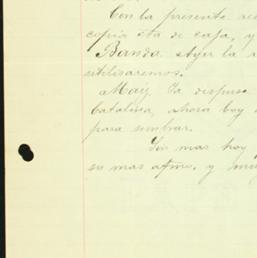 Con la presente
copia cta de caja, y
Banda. Ayer la
utilisaremos.
Maiz. Ya dispuse
Catalina, ahora hoy
para sembrar.
Sin mas hoy
su mas afmo. y